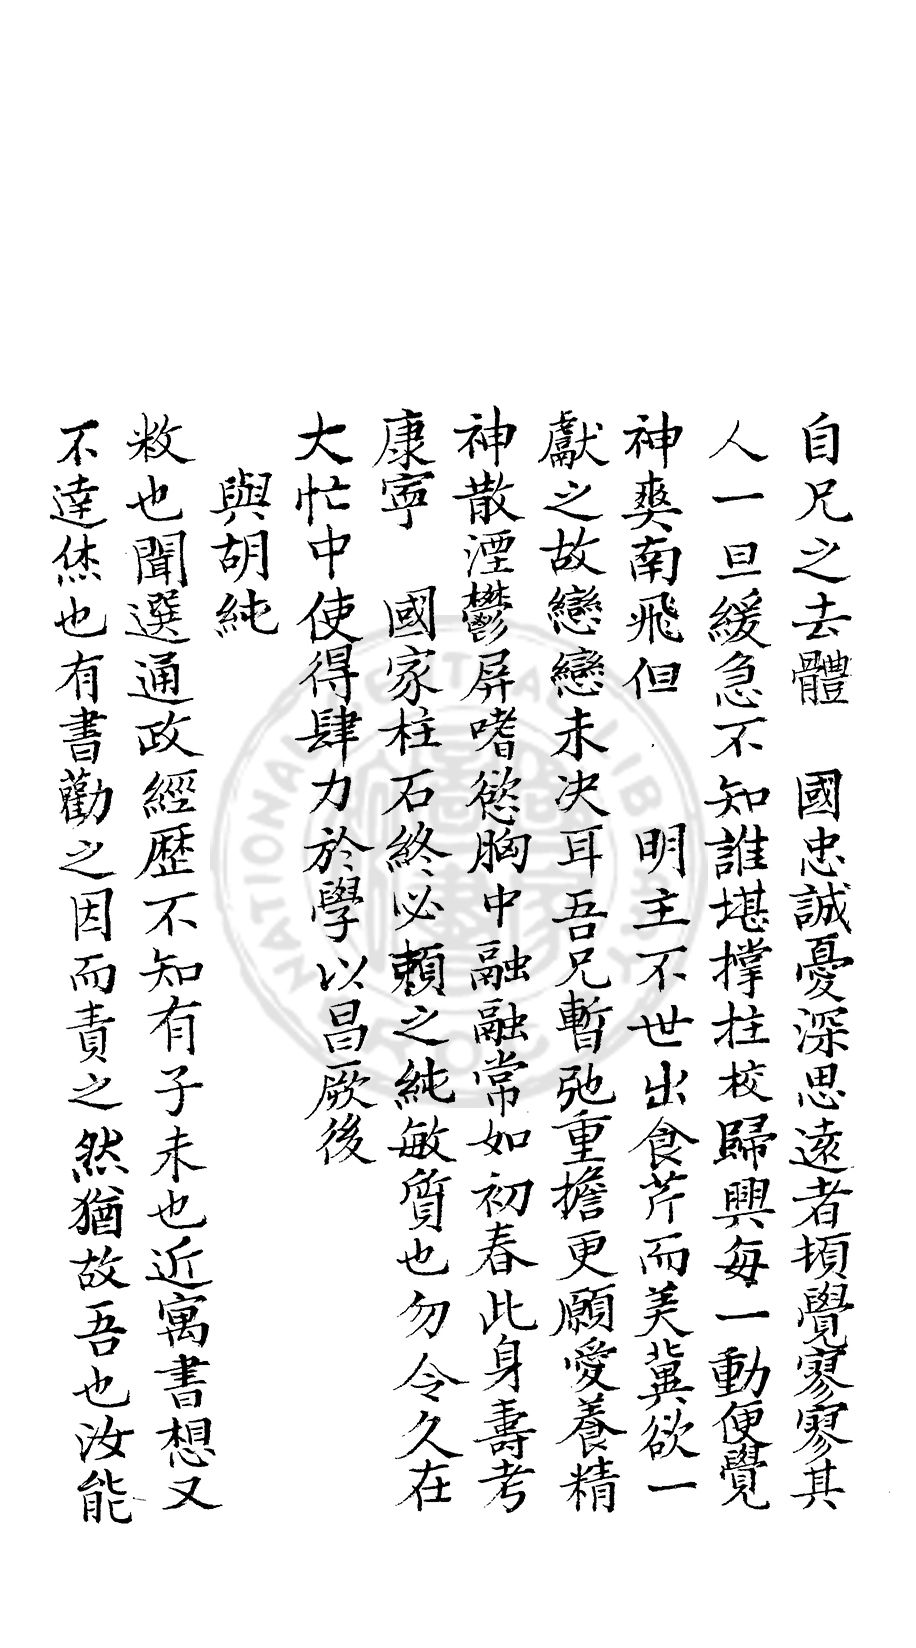 自兄之去體　國忠誠憂深思遠者頃覺寥寥其
人一旦緩急不知誰堪撑柱校歸興每一動便覺
神爽南飛但　　明主不世出食芹而美冀欲一
獻之故戀戀未决耳吾兄暫弛重擔更願愛養精
神散湮鬱屏嗜慾胸中融融常如初春此身壽考
康寧　國家柱石終必賴之純敏質也勿令久在
大忙中使得肆力於學以昌厥後
與胡純
敉也聞選通政經歷不知有子未也近寓書想又
不達恷也有書勸之因而責之然猶故吾也汝能
NATIONAL CENTRAL LIBRARY